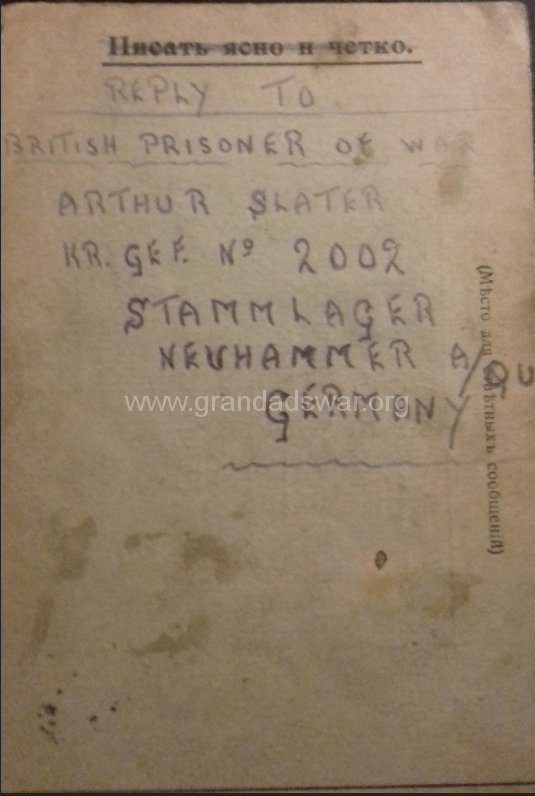 Писать ясно и четко.
REPLY TO
BRITISH PRISONER OF WAR
ARTHUR SLATER
KR. GEF. Nº 2002
STAMMLAGER
NEUHAMMER A/QU
GERMANY
www.grandadswar.org
(Мѣсто для отвѣтныхъ сообщеній)